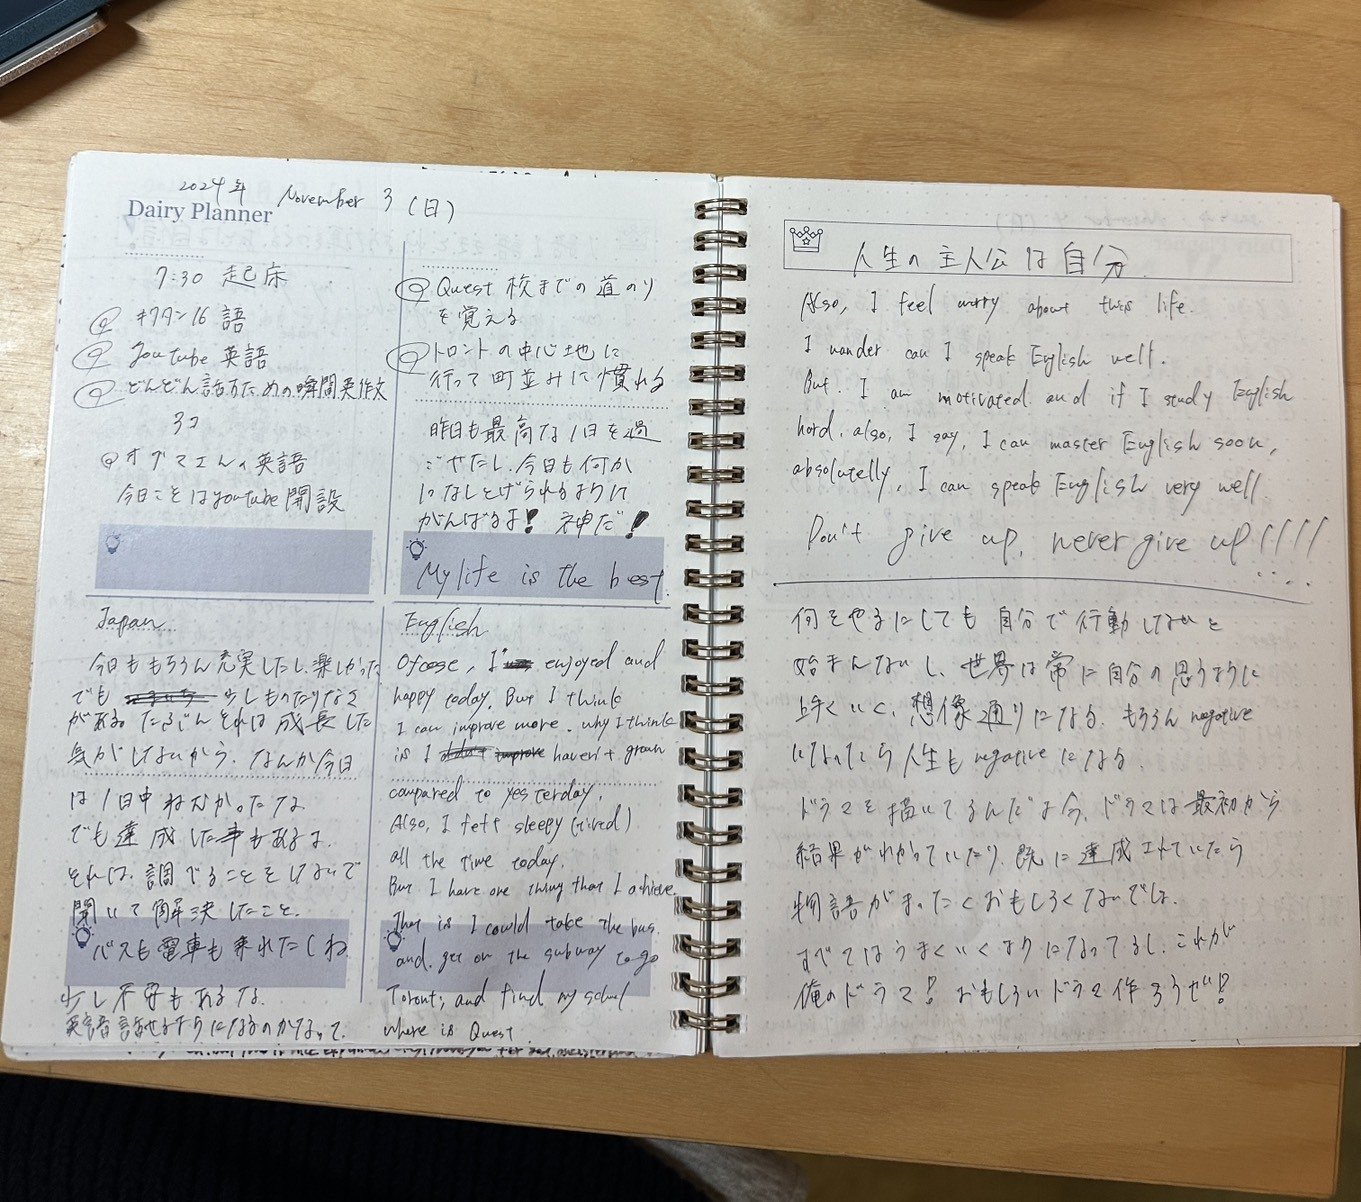 2024年 November 3 (日)
Dairy Planner
7:30 起床
キクタン 16 語
Youtube 英語
どんどん話すための瞬間英作文
3コ
オグマさんの英語
今日こそはyoutube開設
Quest 校までの道のり
を覚える
トロントの中心地に
行って町並みに慣れる
昨日も最高な1日を過
ごせたし、今日も何か
1つなしとげられるように
がんばるよ! 神だ!
My life is the best.
Japan
今日ももちろん充実したし楽しかった
でも 少しものたりなさ
がある。たぶんそれは成長した
気がしないから、なんか今日
は1日中ねむかったな
でも達成した事もあるよ.
それは、調べることをしないで
聞いて解決したこと、
バスも電車も乗れたしね
少し不安もあるな.
英語話せるようになるのかなって、
English
Ofcose, I enjoyed and
happy today. But I think
I can improve more. why I think
is I haven't grown
compared to yesterday.
Also, I felt sleepy (tired)
all the time today.
But I have one thing that I achieve.
That is I could take the bus.
and. get on the subway to go
Toront, and find my schul
where is Quest
人生の主人公は自分.
Also, I feel wurry about this life.
I wander can I speak English well.
But. I am motivated and if I study English
hard. also, I say, I can master English soon,
absolutelly, I can speak English very well.
Don't give up, never give up!!!!
何をやるにしても自分で行動しないと
始まんないし、世界は常に自分の思うように
上手くいく、想像通りになる. もちろん negative
になったら人生も negative になる
ドラマを描いてるんだよ今、ドラマは最初から
結果がわかっていたり、既に達成されていたら
物語がまったくおもしろくないでしょ.
すべてはうまくいくようになってるし、これが
俺のドラマ! おもしろいドラマ作ろうぜ!